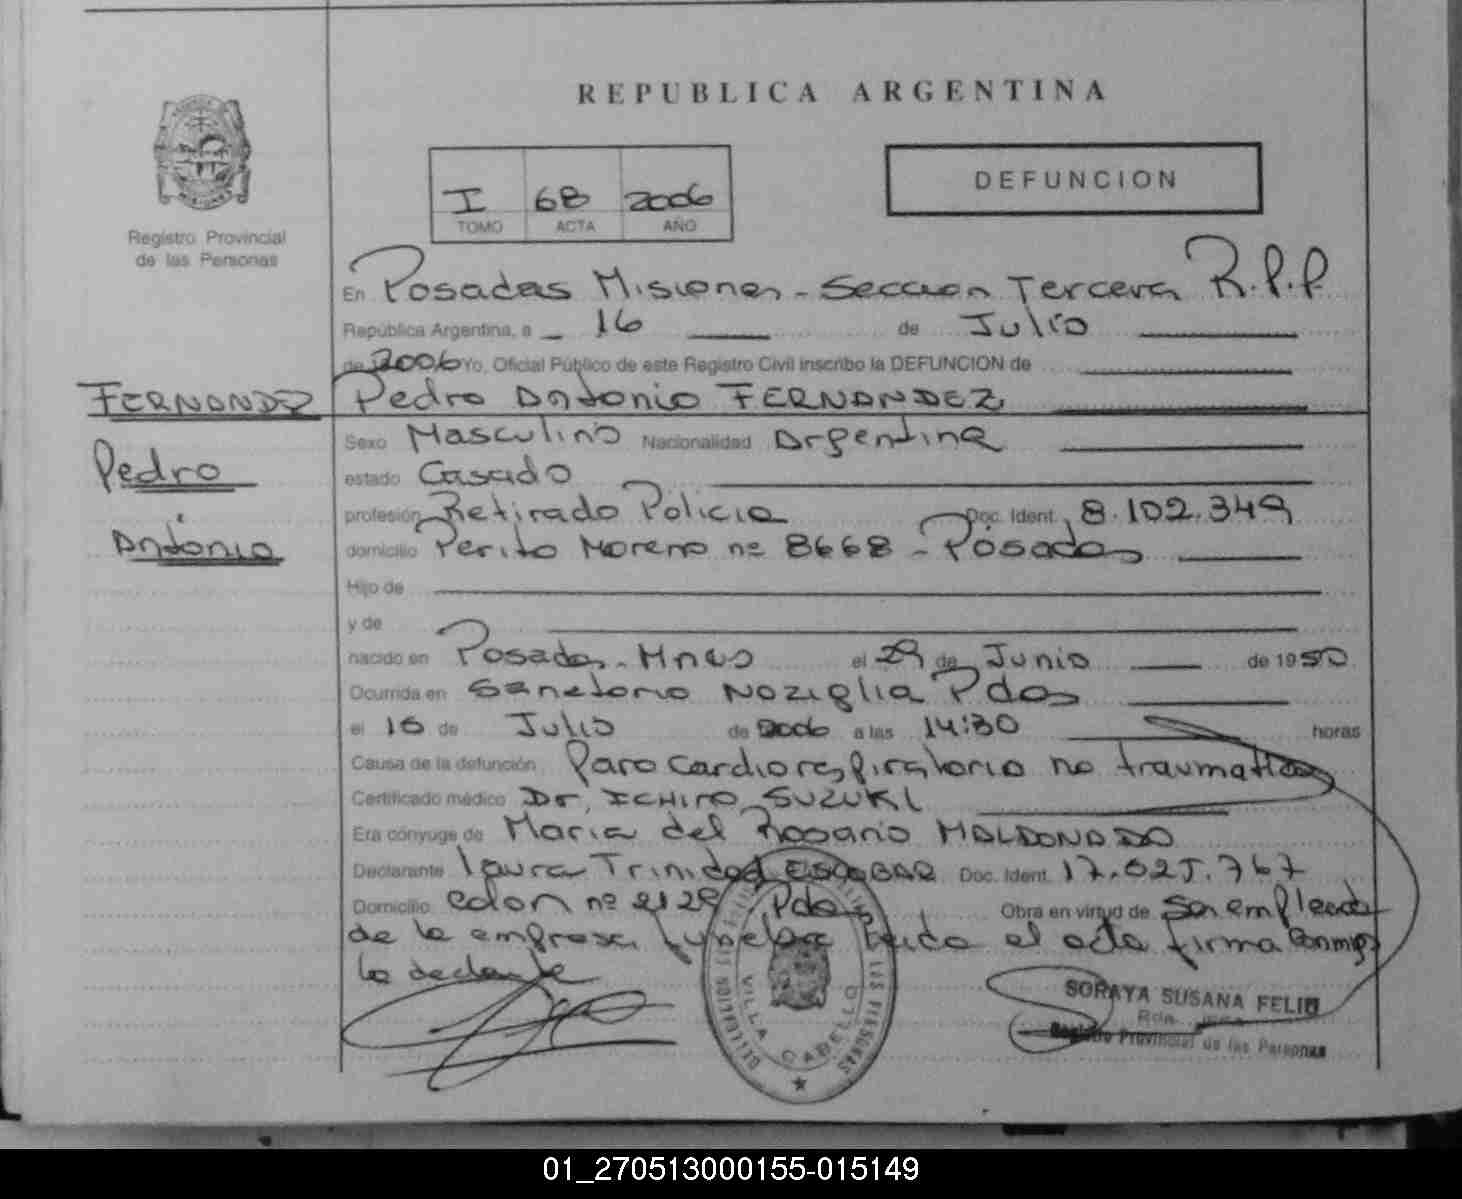 REPUBLICA ARGENTINA
I 68 2006
TOMO ACTA AÑO
DEFUNCION
Registro Provincial
de las Personas
En Posadas Misiones - Seccion Tercera R.P.P
República Argentina, a 16 de Julio
de 2006 Yo, Oficial Público de este Registro Civil inscribo la DEFUNCION de
FERNANDEZ
Pedro
Antonio
Pedro Antonio FERNANDEZ
Sexo Masculino Nacionalidad Argentina
estado Casado
profesión Retirado Policia Doc. Ident. 8.102.349
domicilio Perito Moreno nº 8668 - Posadas
Hijo de
y de
nacido en Posadas - Mnes el 29 de Junio de 1950
Ocurrida en Sanatorio NOZIGLIA Pdas
el 16 de Julio de 2006 a las 14:30 horas
Causa de la defunción Paro cardiorespiratorio no traumatico
Certificado médico Dr. ICHIRO SUZUKI
Era cónyuge de Maria del Rosario MALDONADO
Declarante Laura Trinidad ESCOBAR Doc. Ident. 17.025.767
Domicilio Colon nº 2129 Pdas Obra en virtud de Ser empleada
de la empresa funebre el acta firma Conmigo
la declante
VILLA CABELLO
SORAYA SUSANA FELIP
Registro Provincial de las Personas
01_270513000155-015149